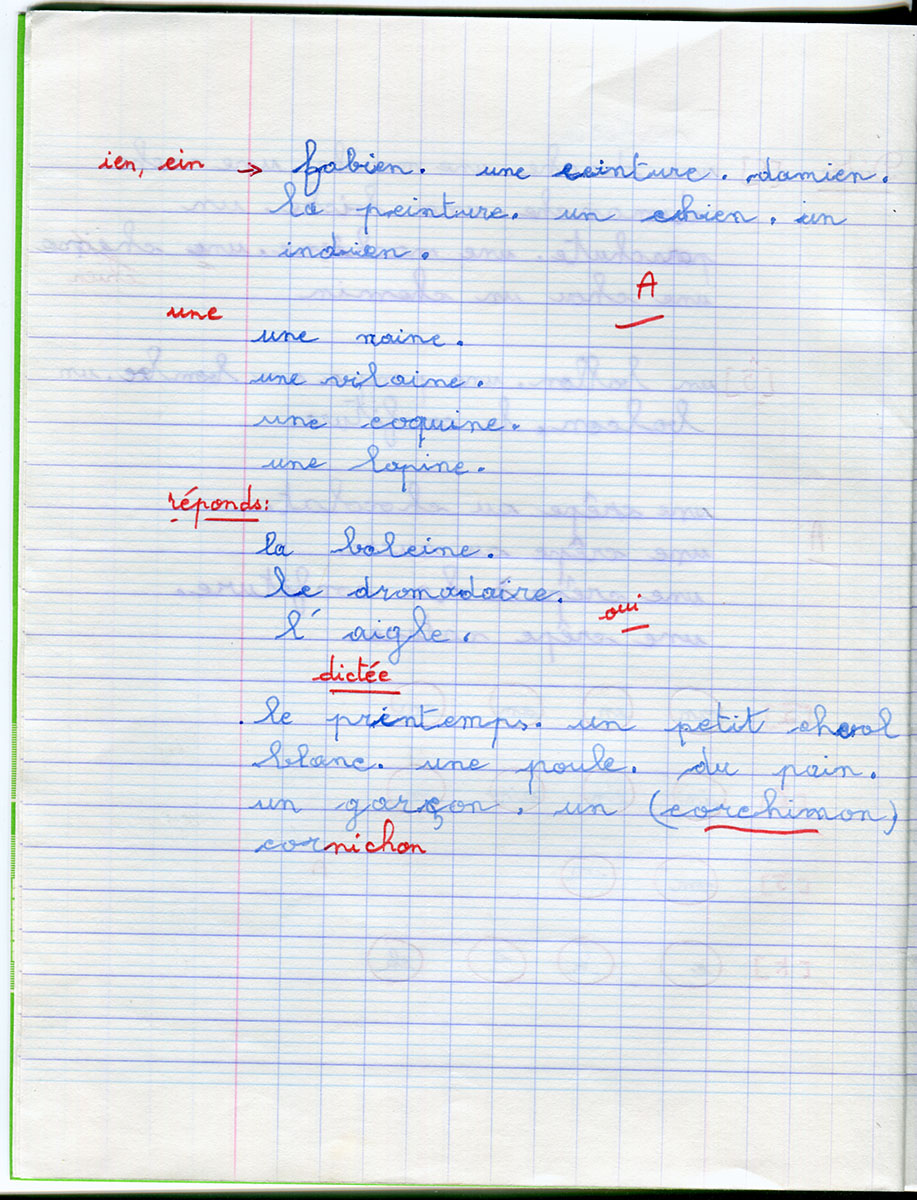 ien, ein → fabien. une ceinture. damien.
la peinture. un chien. un
indien.
A
une
une naine.
une vilaine.
une coquine.
une lapine.
réponds:
la baleine.
le dromadaire.
oui
l'aigle.
dictée
le printemps. un petit cheval
blanc. une poule. du pain.
un garçon. un (corchimon)
cornichon